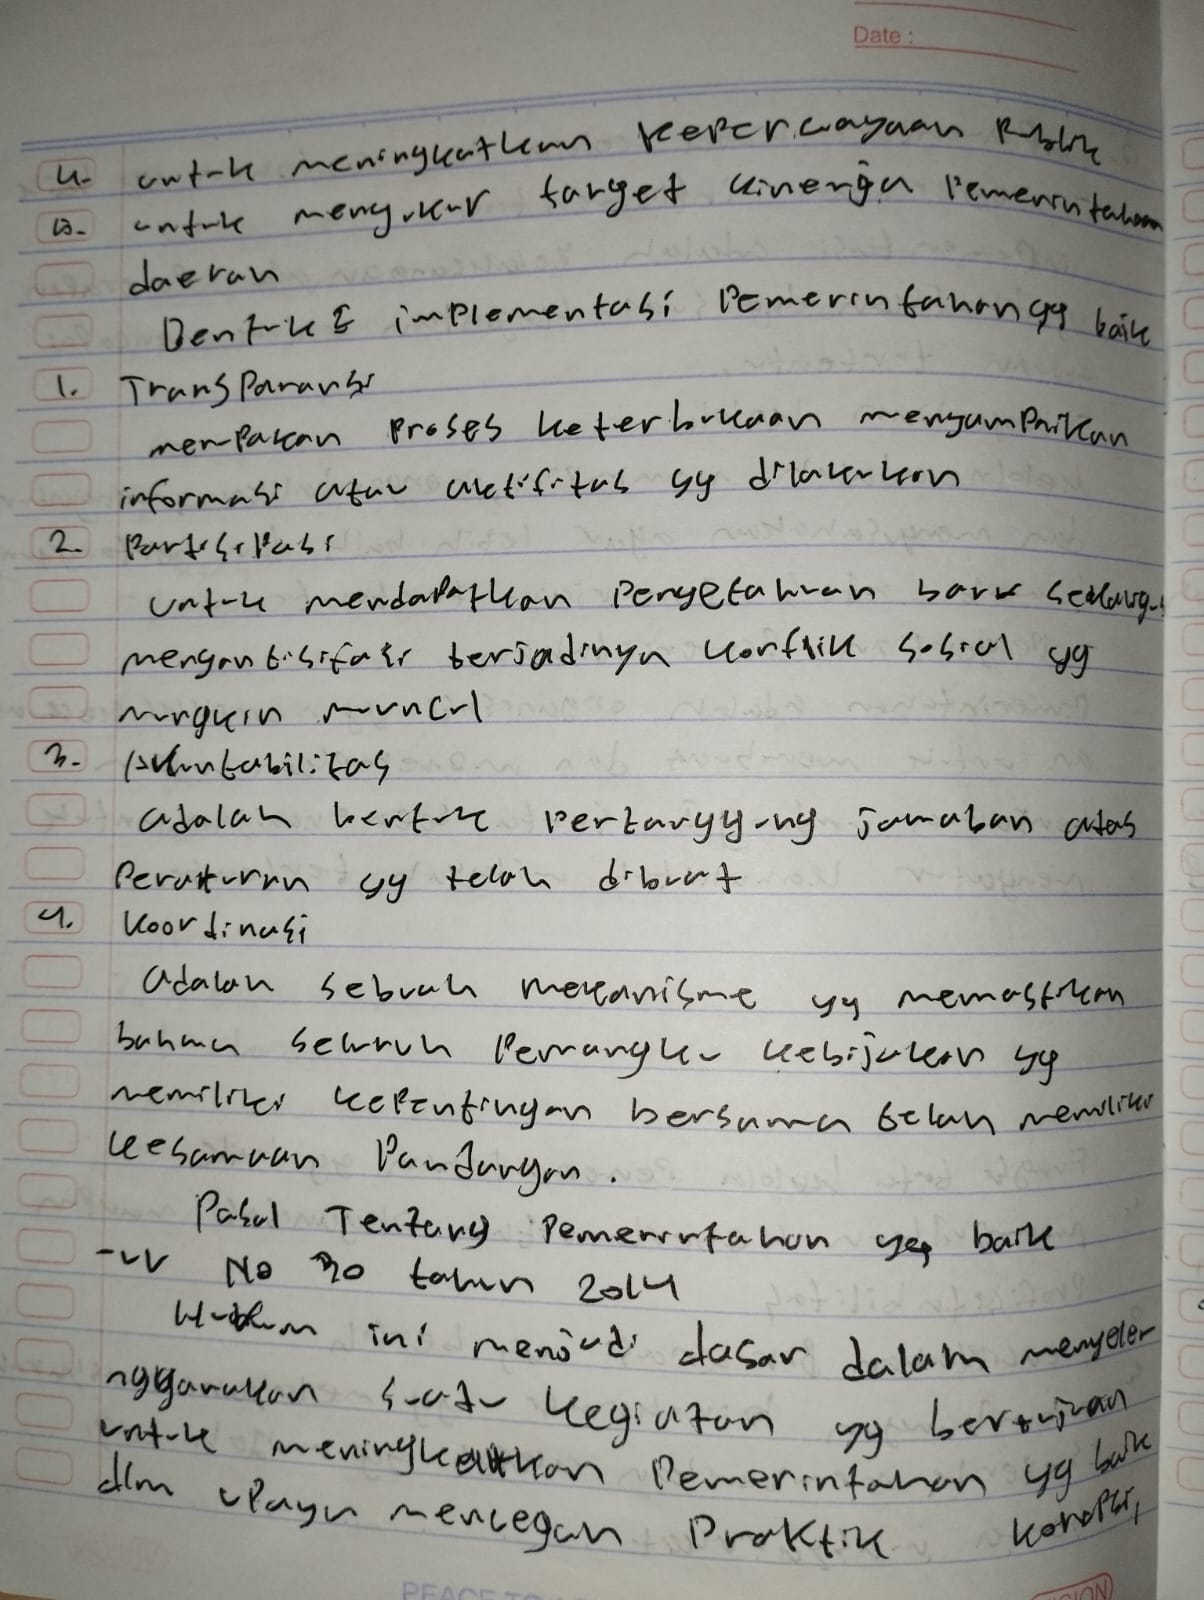 Date :
4. untuk meningkatkan kepercayaan Publik
5. untuk mengukur target kinerja Pemerintahan
daerah
Bentuk2 implementasi Pemerintahan yg baik
1. Transparansi
merupakan Proses keterbukaan menyampaikan
informasi atau aktifitas yg dilakukan
2. Partisipasi
untuk mendapatkan Pengetahuan baru sekaligus
mengantisifasi terjadinya konflik sosial yg
mungkin muncul
3. Akuntabilitas
adalah bentuk Pertanggung jawaban atas
Peraturan yg telah dibuat
4. Koordinasi
adalah sebuah mekanisme yg memastikan
bahwa seluruh Pemangku kebijakan yg
memiliki kepentingan bersama telah memiliki
kesamaan Pandangan.
Pasal Tentang Pemerintahan yg baik
-UU No 30 tahun 2014
Hukum ini menjadi dasar dalam menyele
nggarakan suatu kegiatan yg bertujuan
untuk meningkatkan Pemerintahan yg baik
dlm upaya mencegah Praktik korupsi,